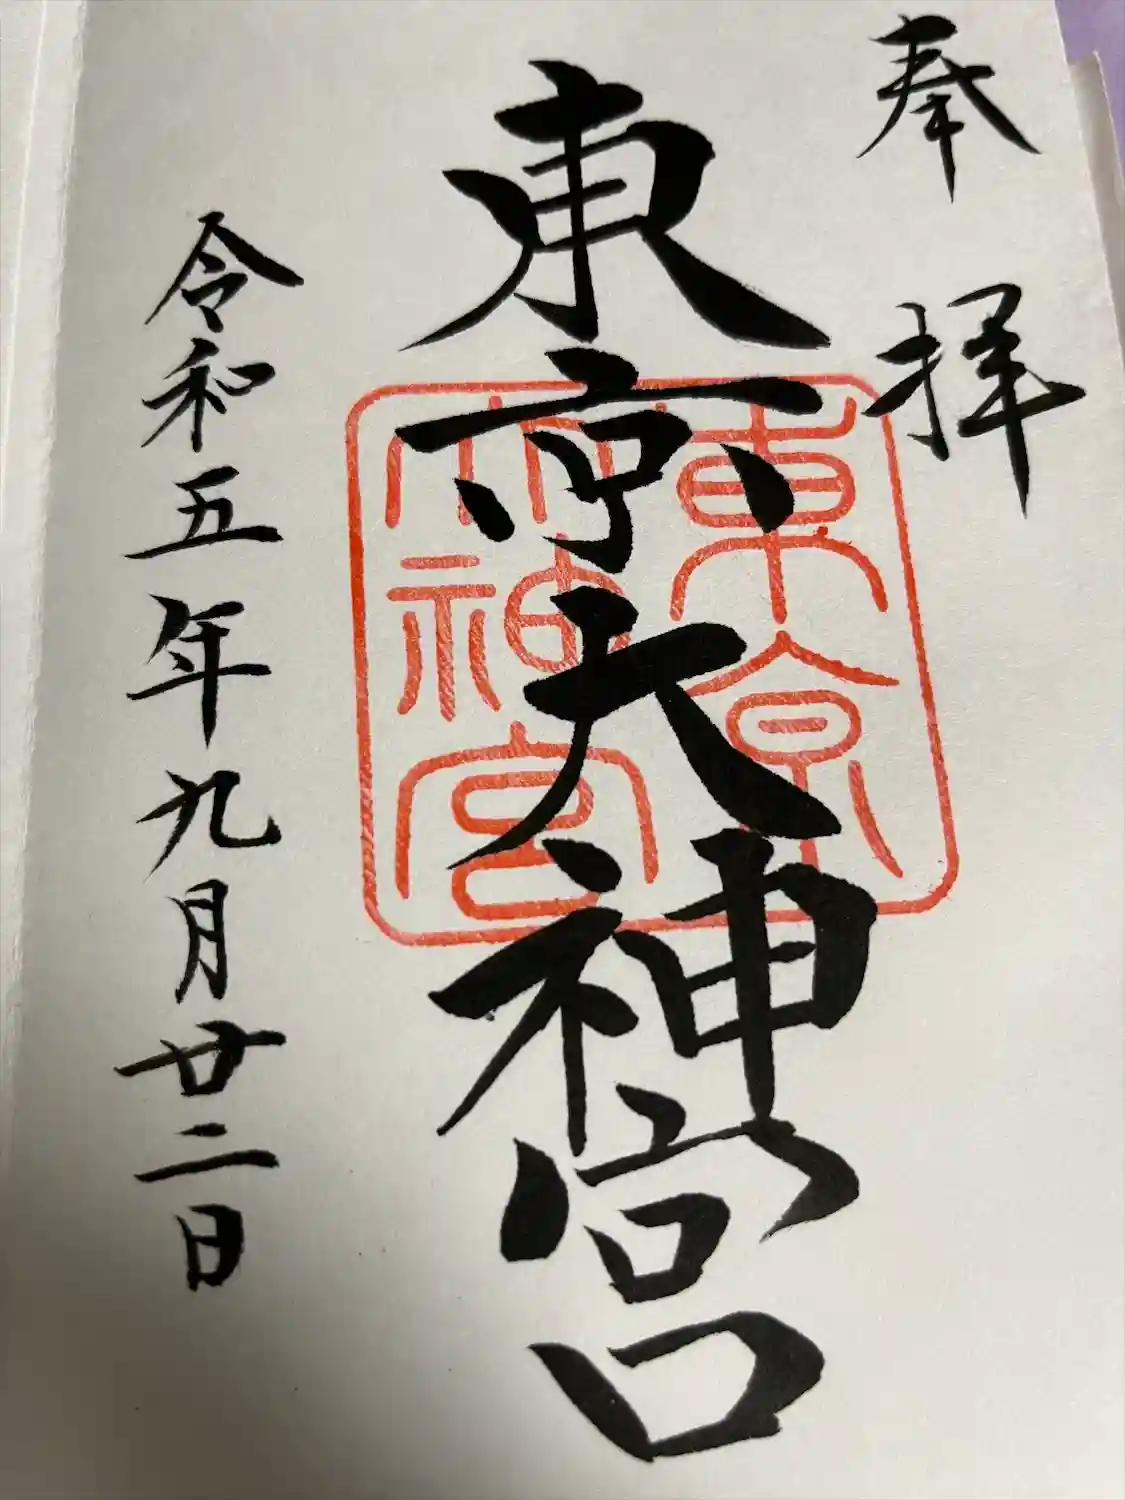 奉拝
東京大神宮
東京
大神宮
令和五年九月廿二日